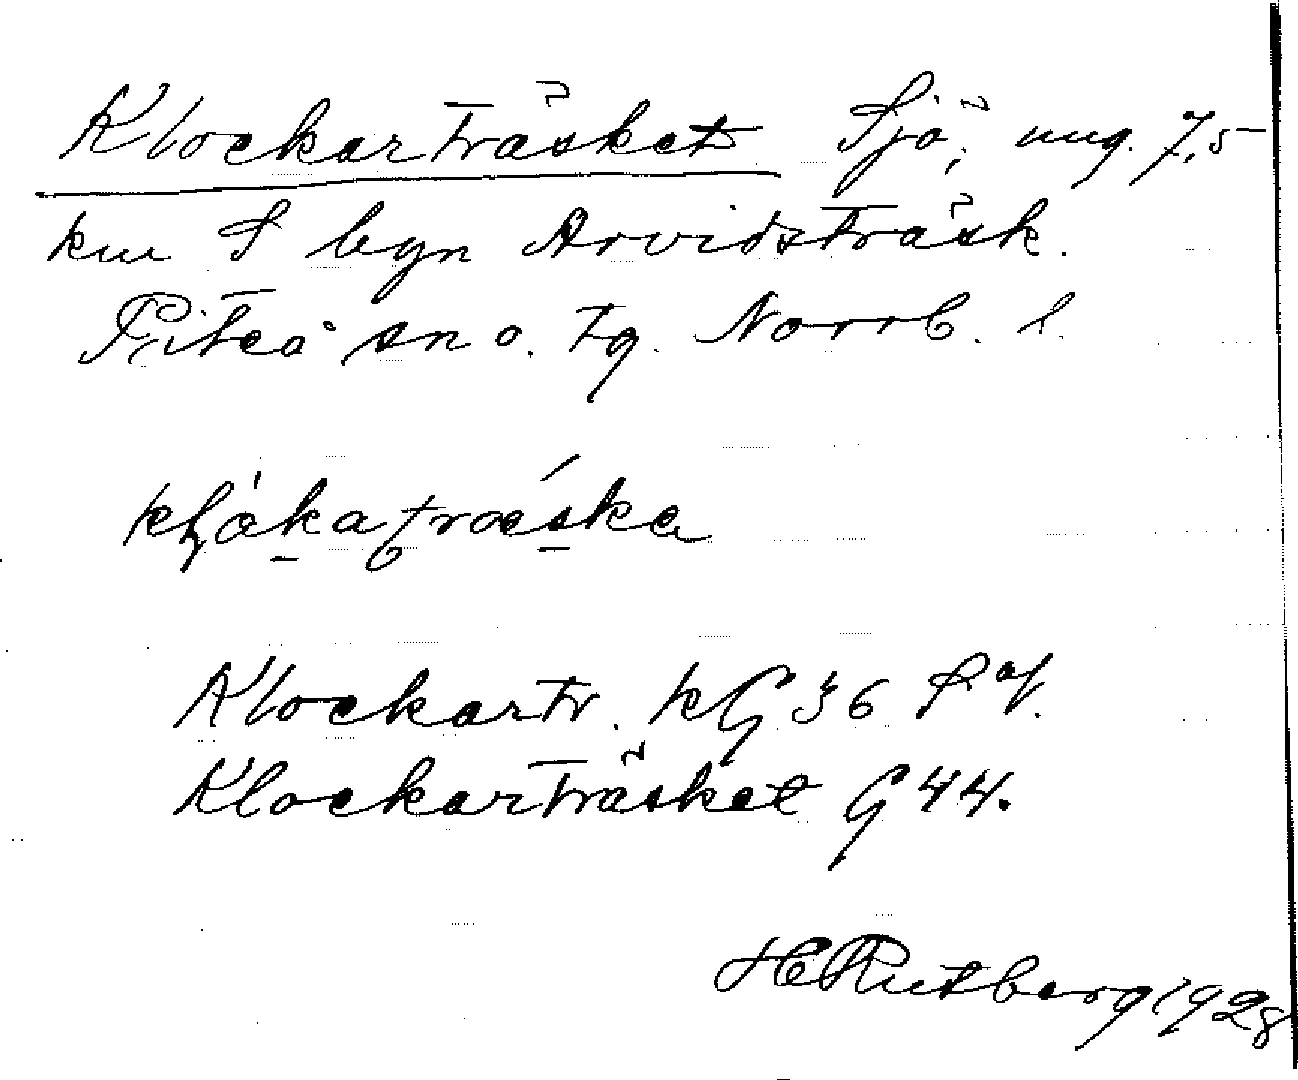 Klockarträsket Sjö, ung. 7,5
km S byn Arvidsträsk.
Piteå sn o. tg. Norrb. l.
Klockartr. kG 36 S of.
Klockarträsket G 44.
H Rutberg 1928